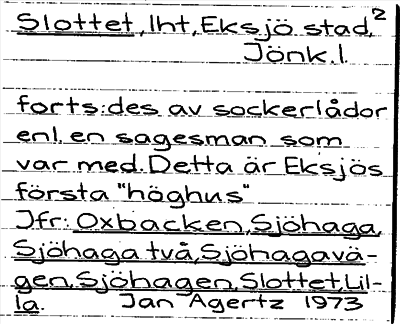 Slottet, lht, Eksjö stad, 2
Jönk. l.
forts: des av sockerlådor
enl. en sagesman som
var med. Detta är Eksjös
första "höghus"
Jfr: Oxbacken, Sjöhaga,
Sjöhaga två, Sjöhagavä-
gen, Sjöhagen, Slottet, Lil-
la. Jan Agertz 1973